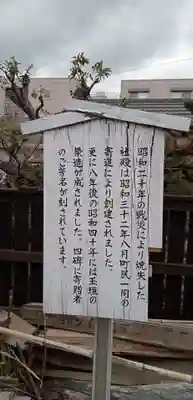 昭和二十年の戦災により焼失した
社殿は昭和三十二年八月町民一同の
寄進により創建されました。
更に八年後の昭和四十年には玉垣の
築造が成されました。四碑に寄贈者
のご芳名が刻されています。